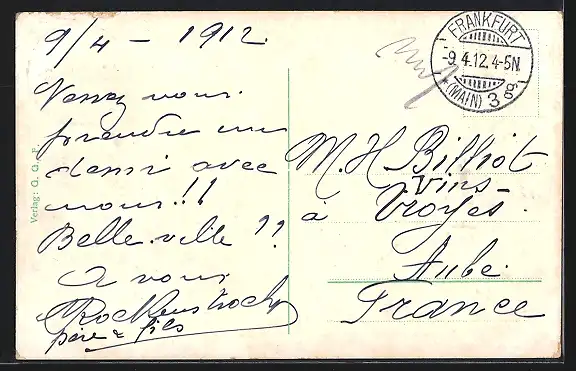 9/4 – 1912.
Venez vous
prendre un
demi avec
nous!!
Belle ville !!
A vous
père & fils
Verlag: G. G. F.
FRANKFURT
-9.4.12.4-5N.
*(MAIN) 3 bg
M. H. Billiot
Vins
à Troyes.
Aube.
France